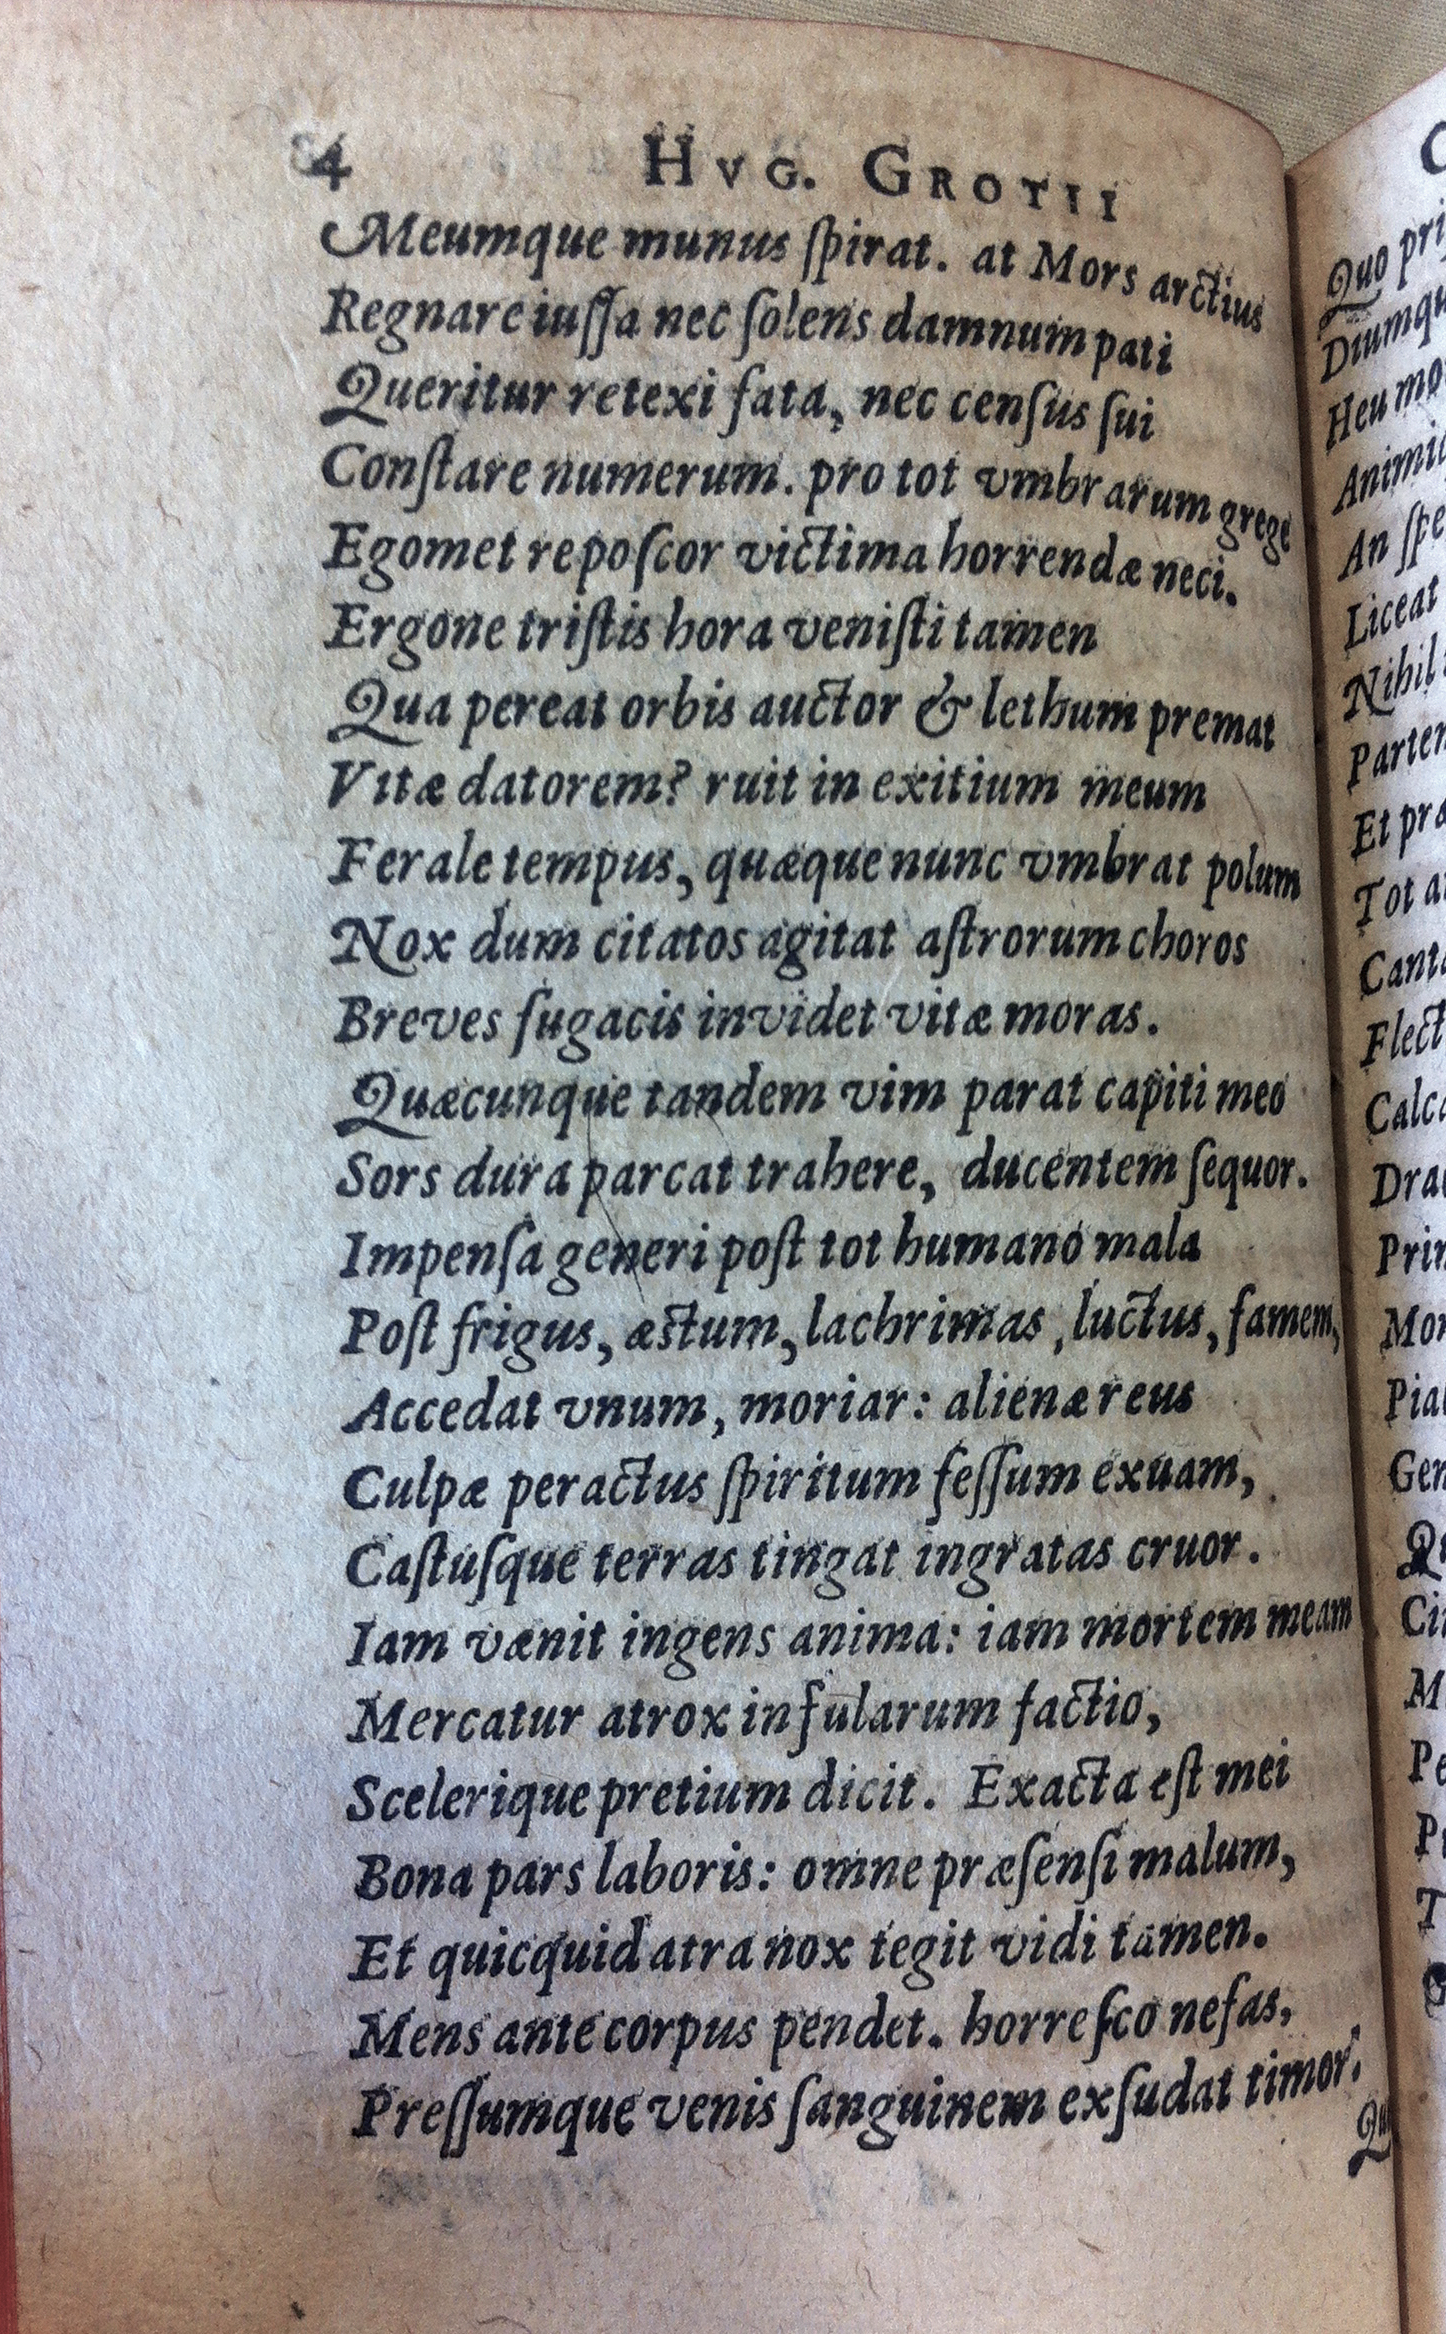 4 HVG. GROTII
Meumque munus ſpirat. at Mors arctius
Regnare iuſſa nec ſolens damnum pati
Queritur retexi fata, nec cenſus ſui
Conſtare numerum. pro tot vmbrarum grege
Egomet repoſcor victima horrendæ neci.
Ergone triſtis hora veniſti tamen
Qua pereat orbis auctor & lethum premat
Vitæ datorem? ruit in exitium meum
Ferale tempus, quæque nunc vmbrat polum
Nox dum citatos agitat aſtrorum choros
Breves fugacis invidet vitæ moras.
Quæcunque tandem vim parat capiti meo
Sors dura parcat trahere, ducentem ſequor.
Impenſa generi poſt tot humano mala
Poſt frigus, æſtum, lachrimas, luctus, famem,
Accedat vnum, moriar: alienæ reus
Culpæ peractus ſpiritum feſſum exuam,
Caſtuſque terras tingat ingratas cruor.
Iam vænit ingens anima: iam mortem meam
Mercatur atrox infularum factio,
Scelerique pretium dicit. Exacta eſt mei
Bona pars laboris: omne præſenſi malum,
Et quicquid atra nox tegit vidi tamen.
Mens ante corpus pendet. horreſco nefas,
Preſſumque venis ſanguinem exſudat timor.
Quo
Heu
An
Liceat
Et
Tot